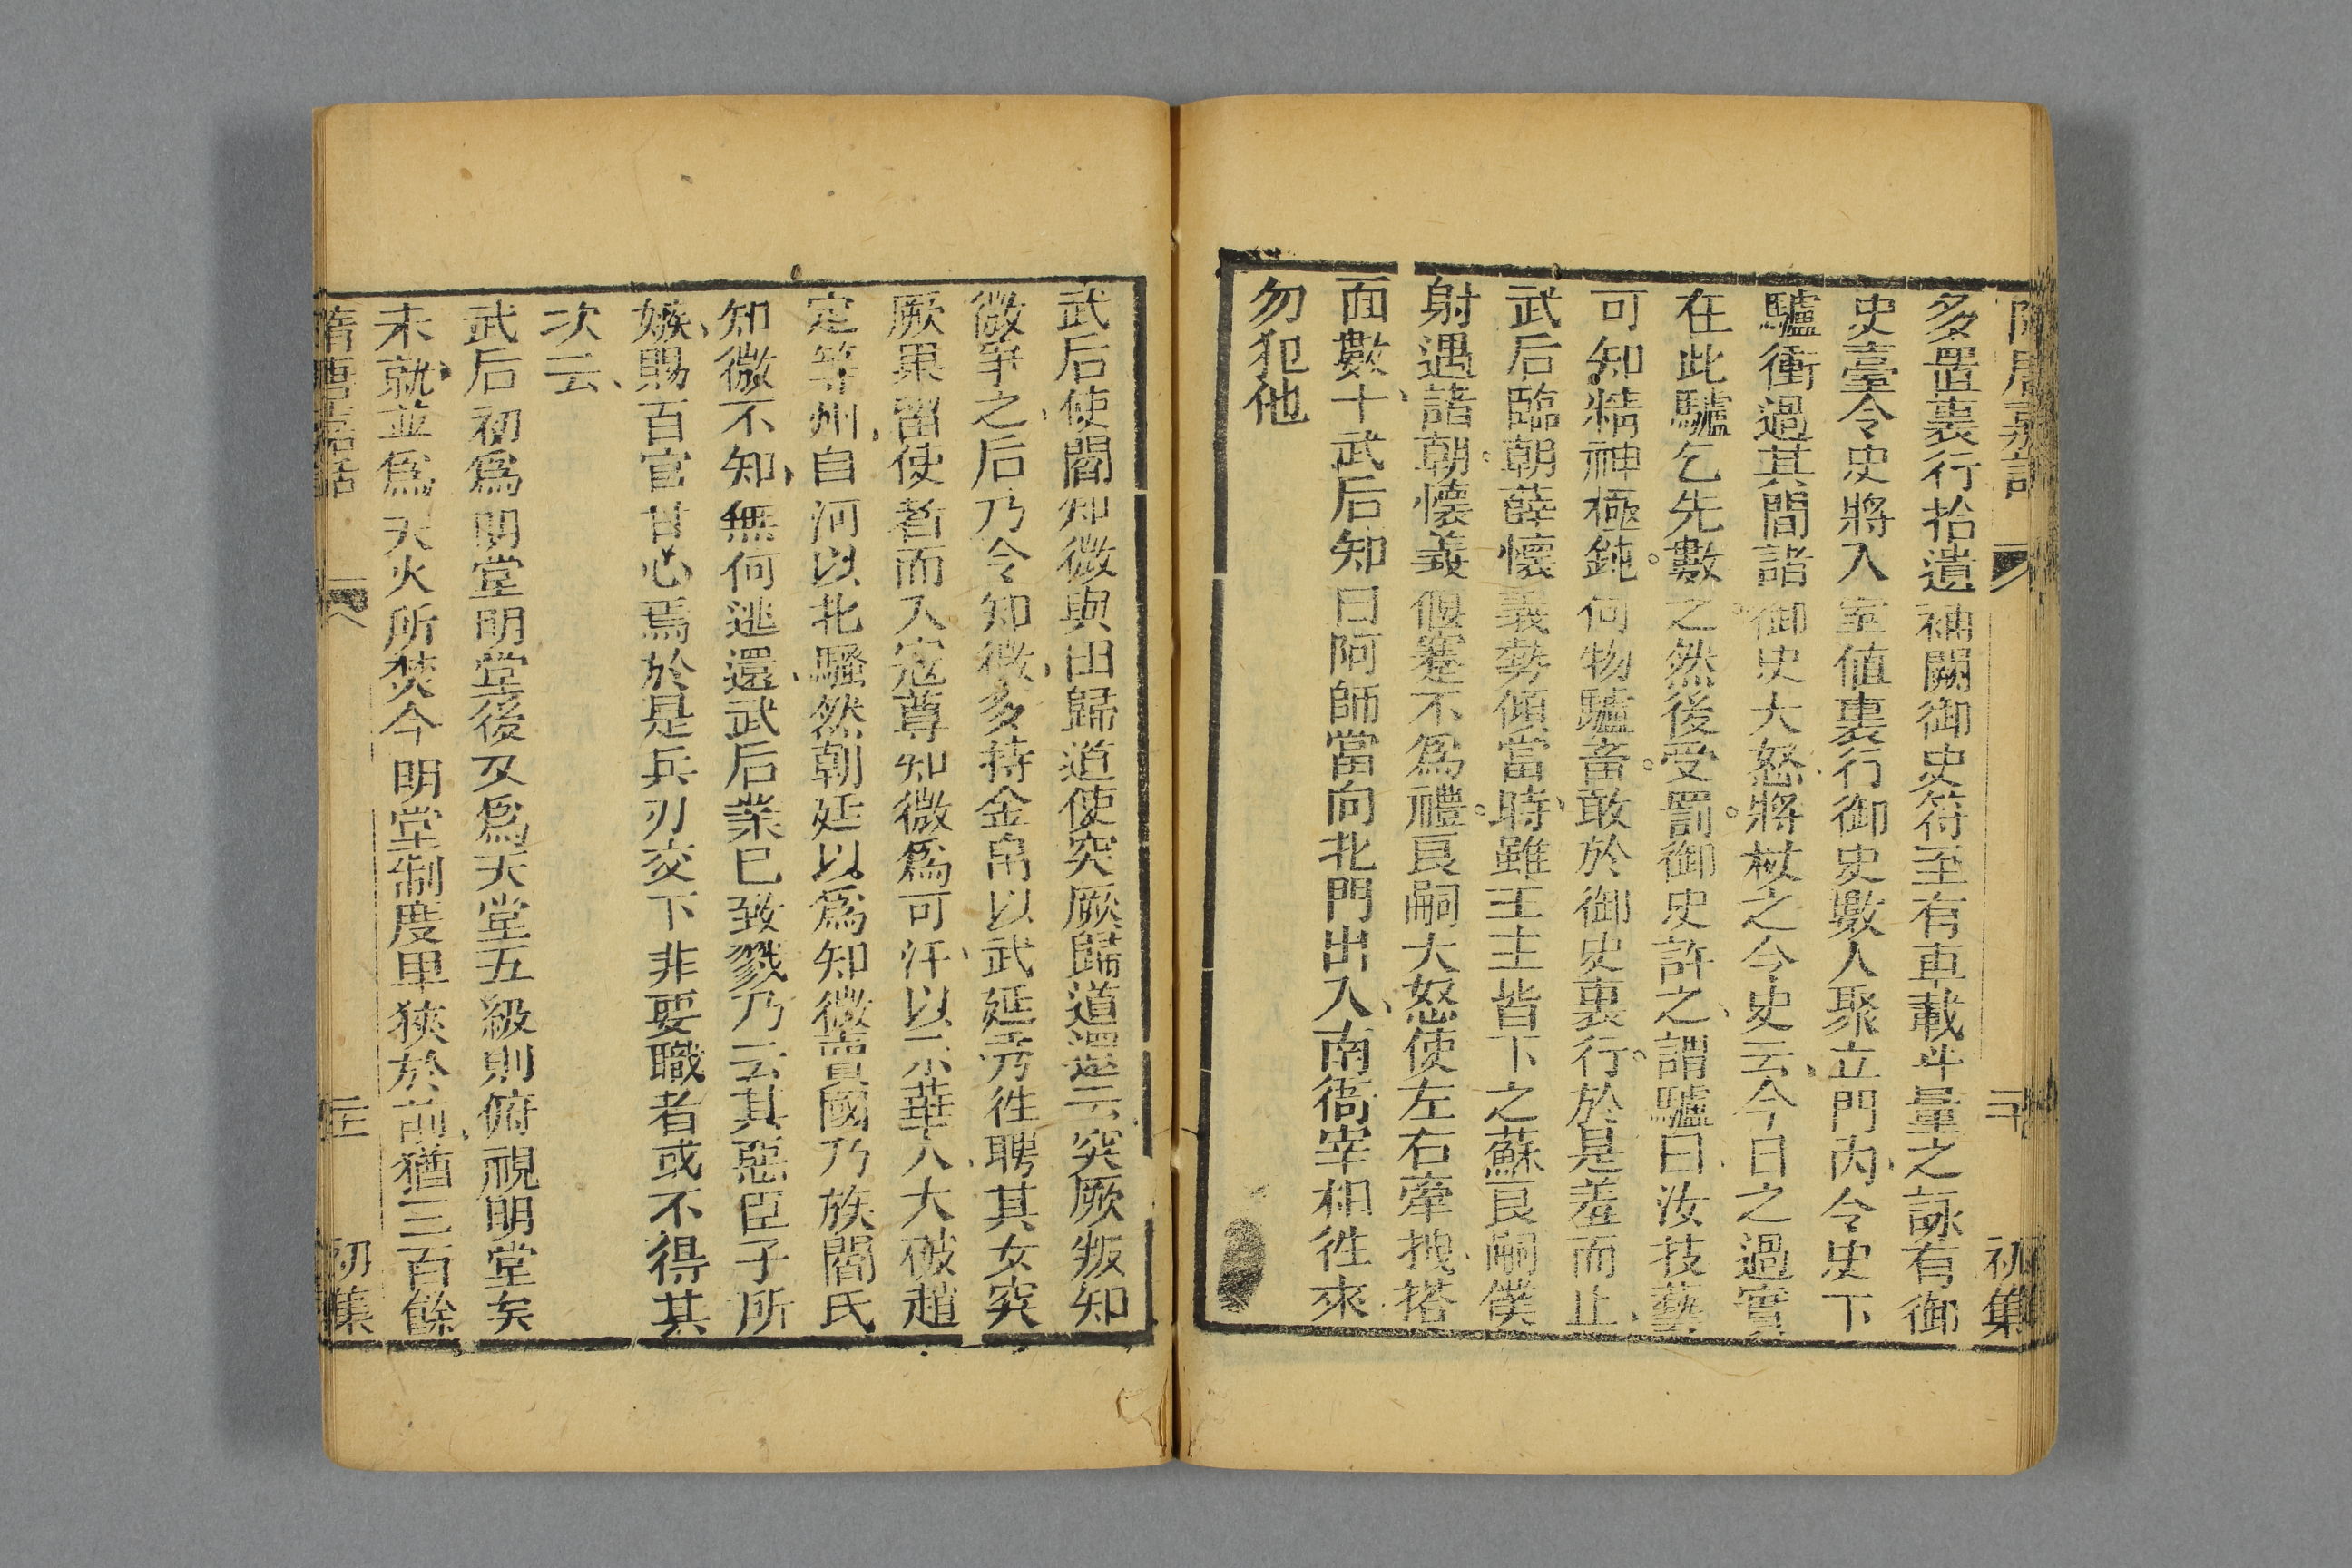 隋唐嘉話 二十 初集
多置裏行拾遺補闕御史符至有車載斗量之詠有御
史臺令史將入室值裏行御史數人聚立門內令史下
驢衝過其間諸御史大怒將杖之令史云今日之過實
在此驢乞先數之然後受罰御史許之謂驢曰汝技藝
可知精神極鈍何物驢畜敢於御史裏行於是羞而止
武后臨朝薛懷義勢傾當時雖王主皆下之蘇良嗣僕
射遇諸朝懷義偃蹇不爲禮良嗣大怒使左右牽拽搭
面數十武后知曰阿師當向北門出入南衙宰相往來
勿犯他
武后使閻知微與田歸道使突厥歸道還云突厥叛知
微爭之后乃令知微多持金帛以武延秀往聘其女突
厥果留使者而入寇尊知微爲可汗以示華人大破趙
定等州自河以北騷然朝廷以爲知微賣國乃族閻氏
知微不知無何逃還武后業已致戮乃云其惡臣子所
嫉賜百官甘心焉於是兵刃交下非要職者或不得其
次云
武后初爲明堂明堂後又爲天堂五級則俯視明堂矣
未就並爲天火所焚今明堂制度卑狹於前猶三百餘
隋唐嘉話 初集